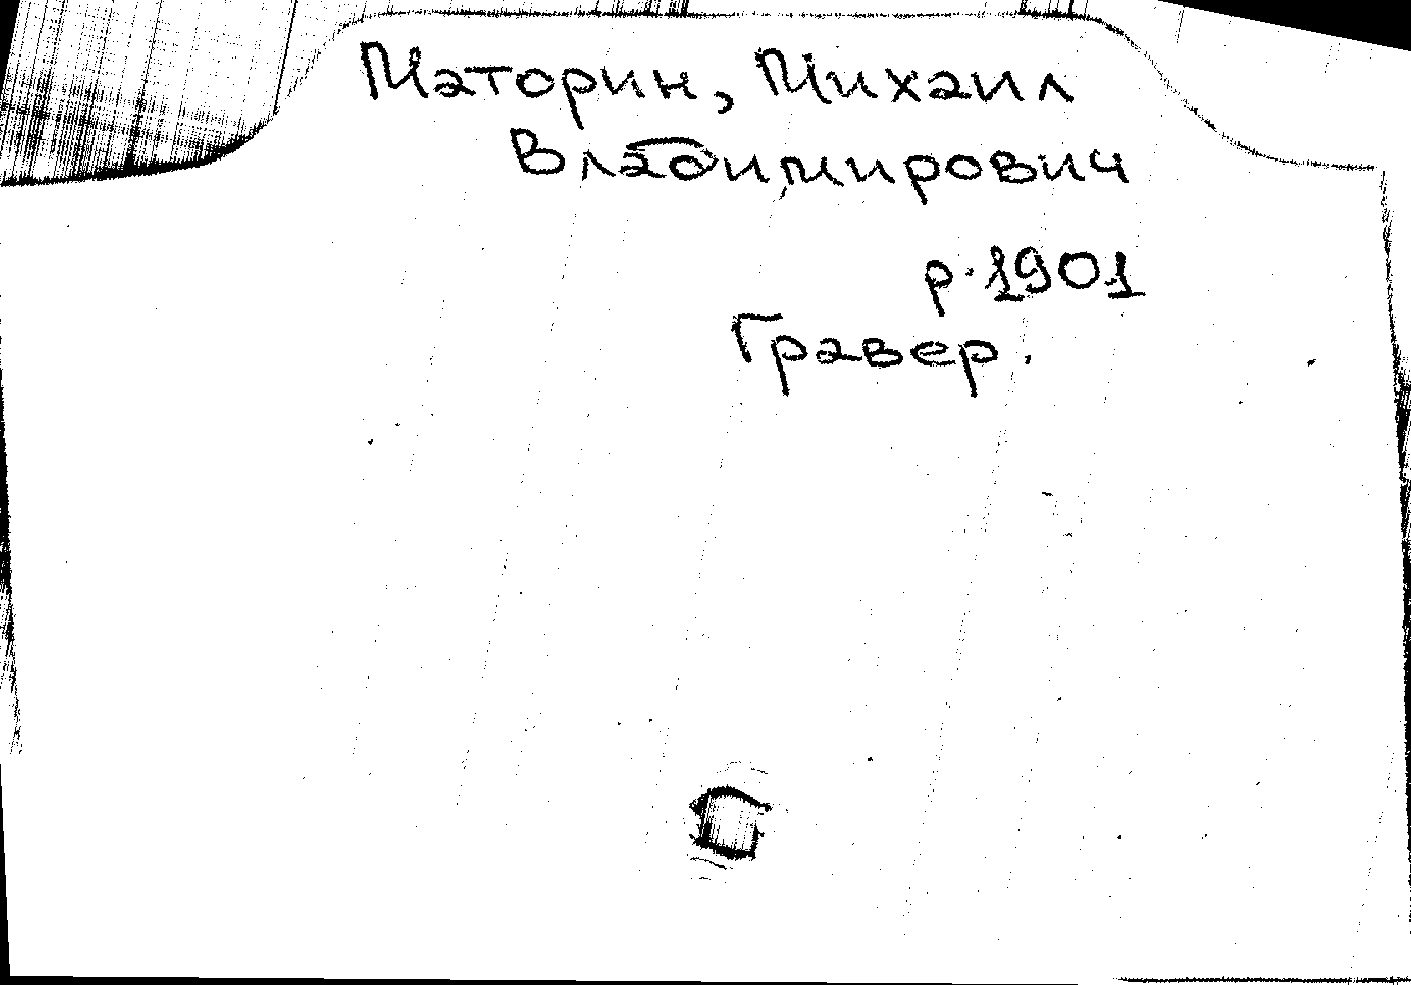 Маторин, Михаил
Владимирович
р. 1901
Гравер.